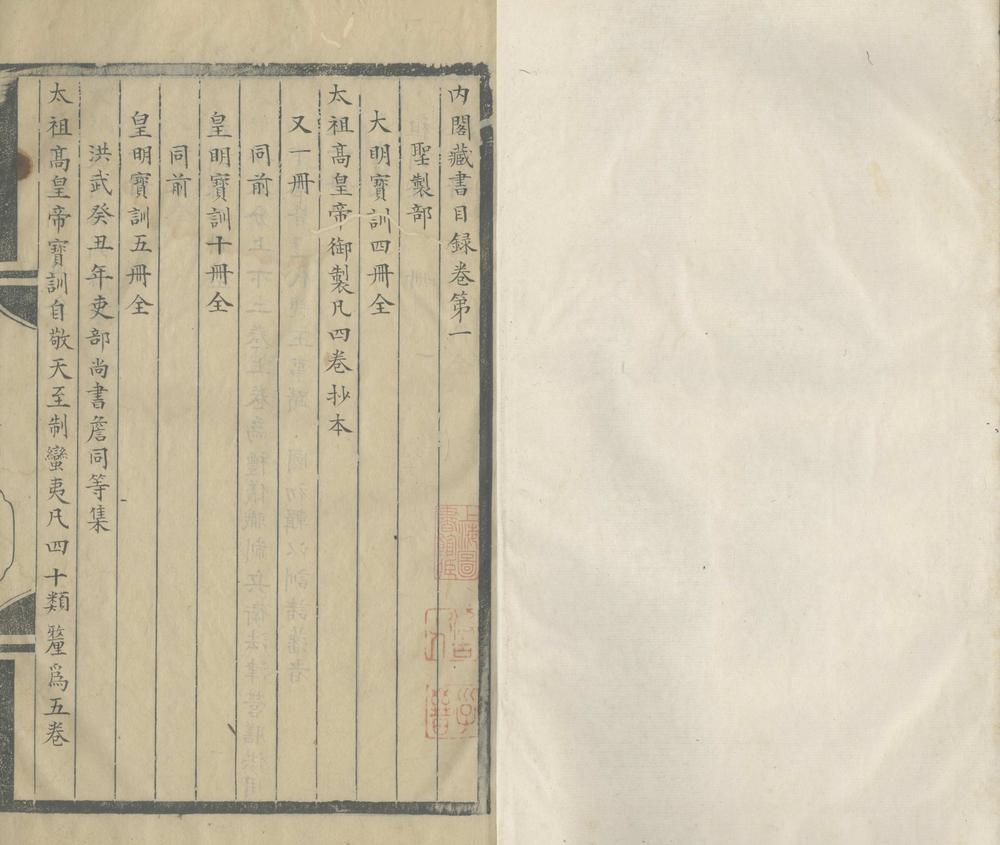 内閣藏書目録卷第一
聖製部
大明寶訓四冊全
太祖高皇帝御製凡四卷抄本
又一冊
同前
皇明寶訓十冊全
同前
皇明寶訓五冊全
洪武癸丑年吏部尚書詹同等集
太祖髙皇帝寶訓自敬天至制蠻夷凡四十類釐爲五卷
上海圖書館藏